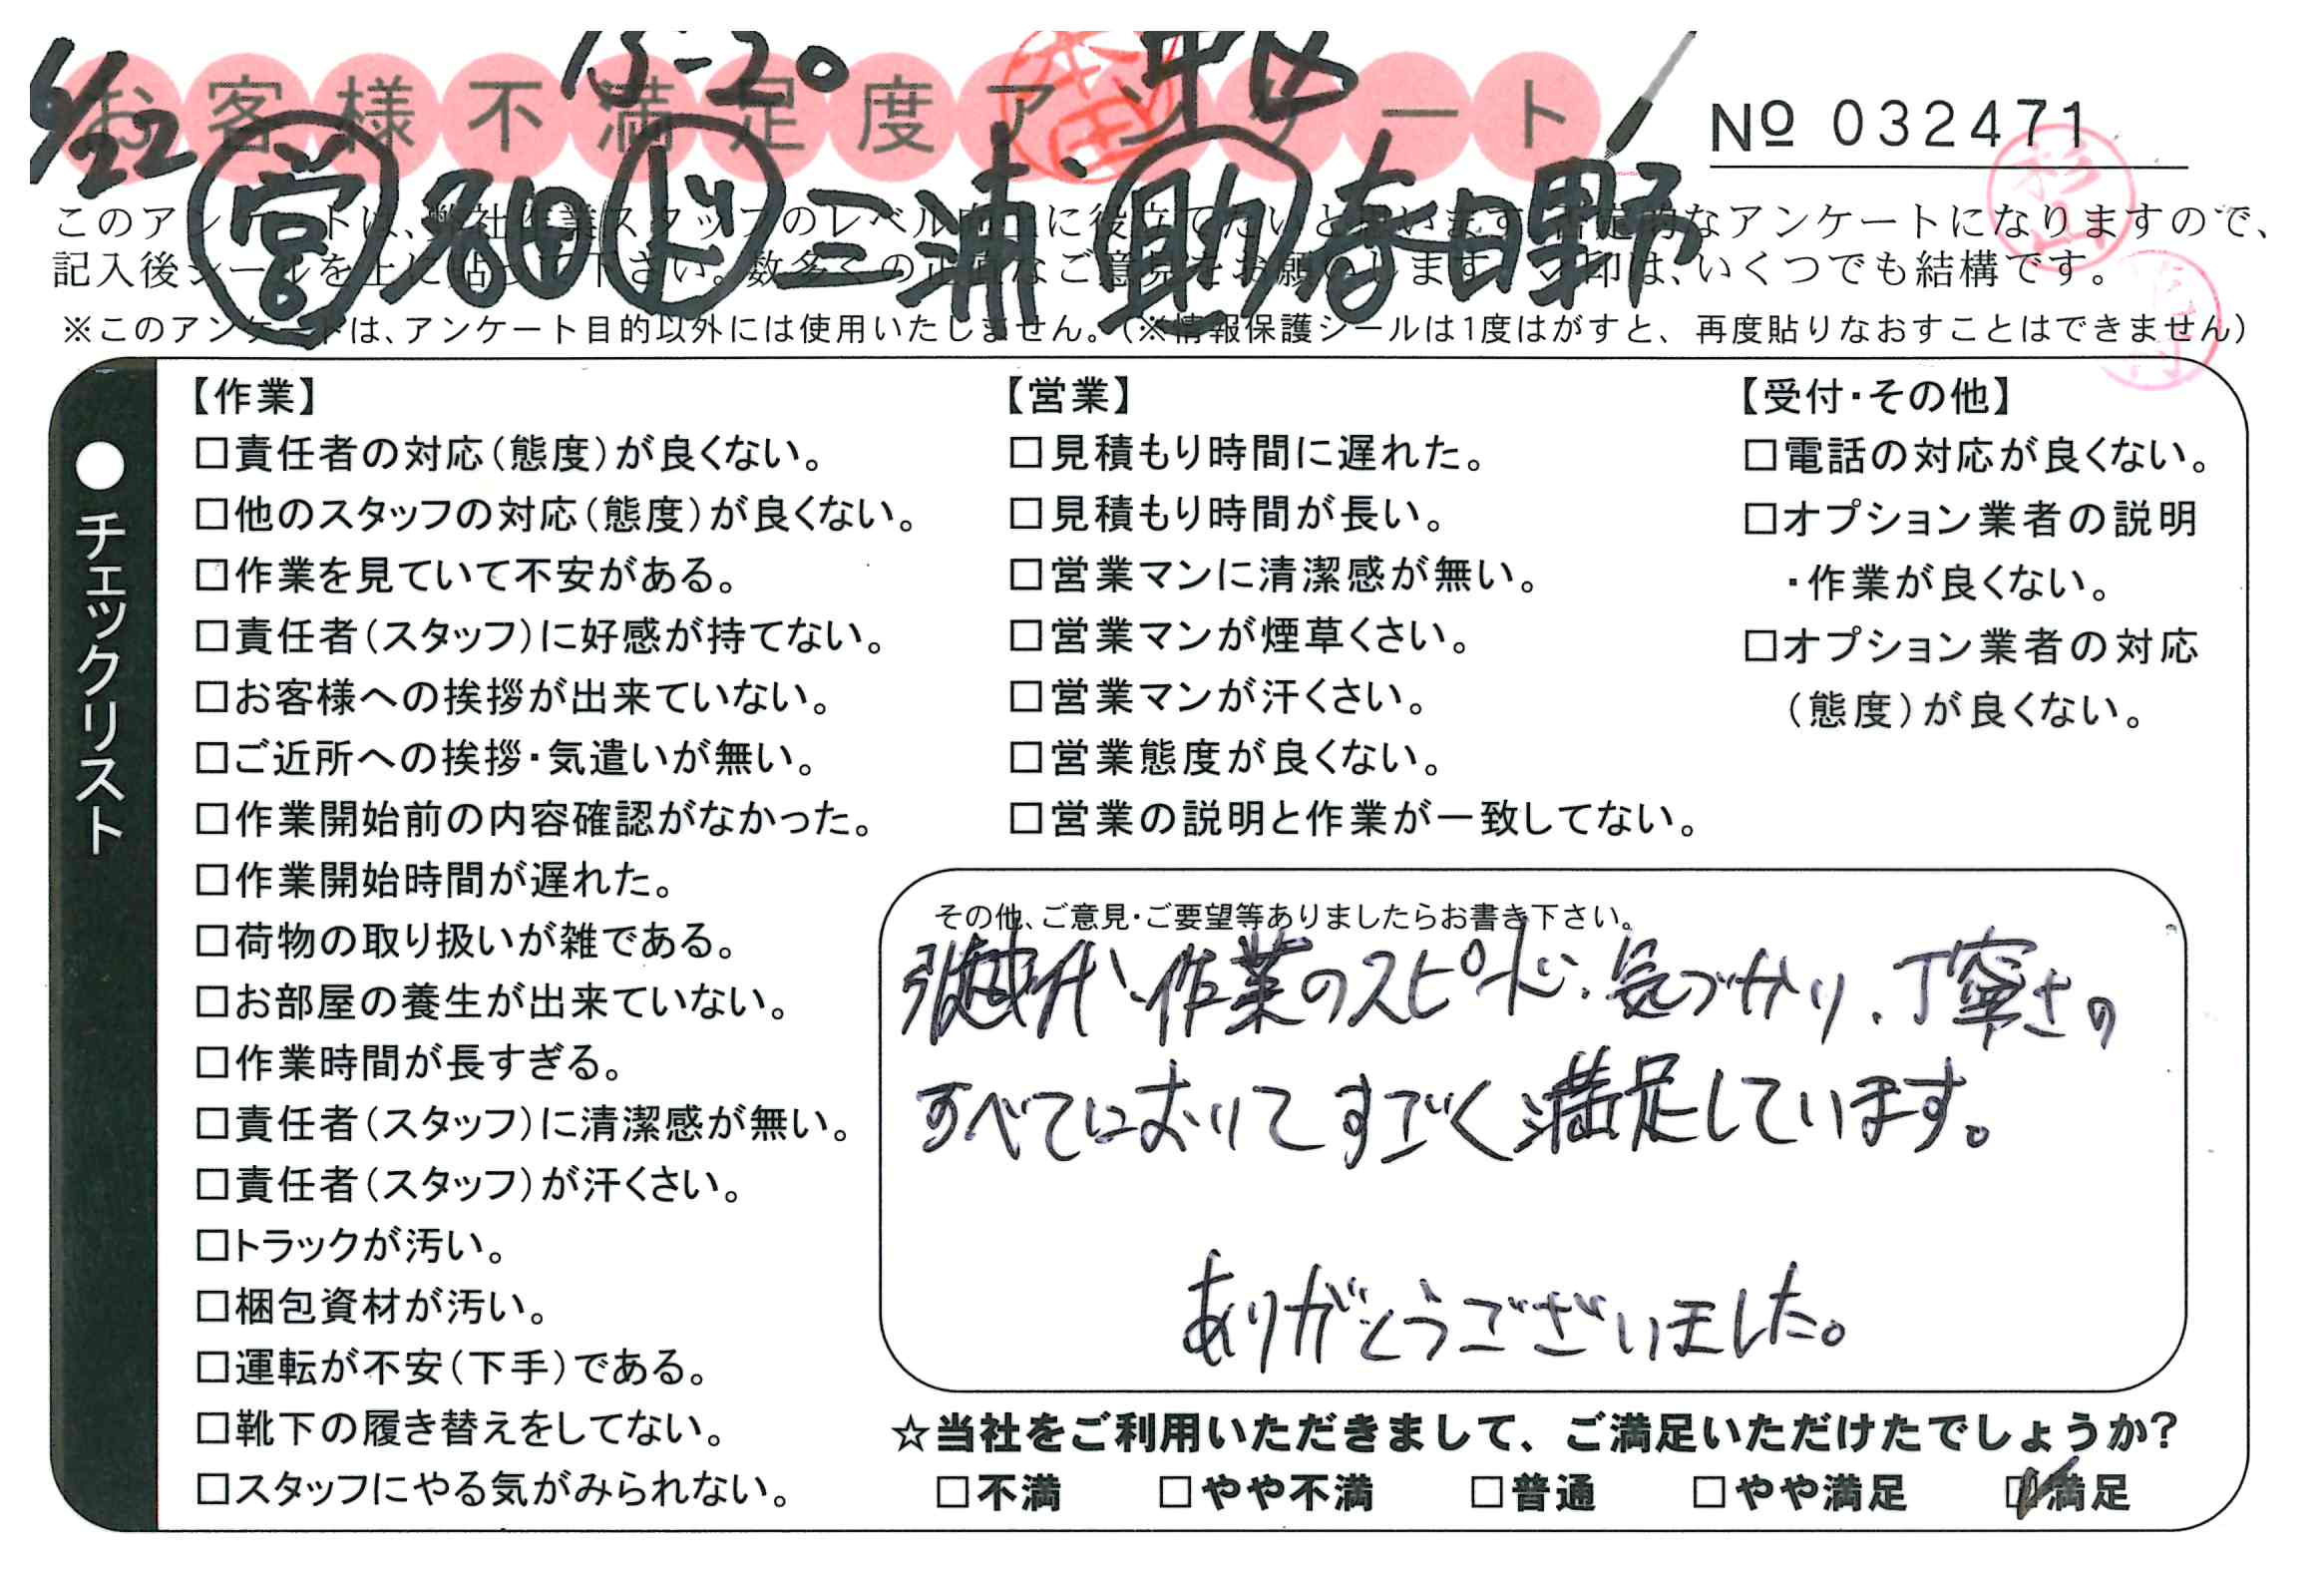 6/22 15-20 中区
お客様不満足度アンケート
№ 032471
営 多田 ド 三浦 助 春日野
このアンケートは、弊社作業スタッフのレベル向上に役立てたいと思います。否定的なアンケートになりますので、
記入後シールを上に貼って下さい。数多くの正直なご意見をお願いします。✓印は、いくつでも結構です。
※このアンケートは、アンケート目的以外には使用いたしません。(※情報保護シールは1度はがすと、再度貼りなおすことはできません)
●チェックリスト
【作業】
□責任者の対応(態度)が良くない。
□他のスタッフの対応(態度)が良くない。
□作業を見ていて不安がある。
□責任者(スタッフ)に好感が持てない。
□お客様への挨拶が出来ていない。
□ご近所への挨拶・気遣いが無い。
□作業開始前の内容確認がなかった。
□作業開始時間が遅れた。
□荷物の取り扱いが雑である。
□お部屋の養生が出来ていない。
□作業時間が長すぎる。
□責任者(スタッフ)に清潔感が無い。
□責任者(スタッフ)が汗くさい。
□トラックが汚い。
□梱包資材が汚い。
□運転が不安(下手)である。
□靴下の履き替えをしてない。
□スタッフにやる気がみられない。
【営業】
□見積もり時間に遅れた。
□見積もり時間が長い。
□営業マンに清潔感が無い。
□営業マンが煙草くさい。
□営業マンが汗くさい。
□営業態度が良くない。
□営業の説明と作業が一致してない。
【受付・その他】
□電話の対応が良くない。
□オプション業者の説明
・作業が良くない。
□オプション業者の対応
(態度)が良くない。
その他、ご意見・ご要望等ありましたらお書き下さい。
引越代、作業のスピード、気づかり、丁寧さの
すべてにおいてすごく満足しています。
ありがとうございました。
☆当社をご利用いただきまして、ご満足いただけたでしょうか?
□不満 □やや不満 □普通 □やや満足 ☑満足